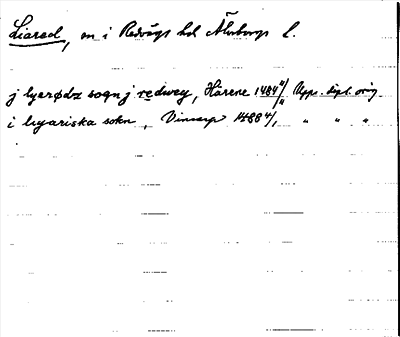 Liared, sn i Redvägs hd Älvsborgs l.
j lyerødz sogn j redweg, Hårene 1484 4/11 Upps. dipl. orig
i lyariska sokn, Vinsarp 1488 4/1 " " "